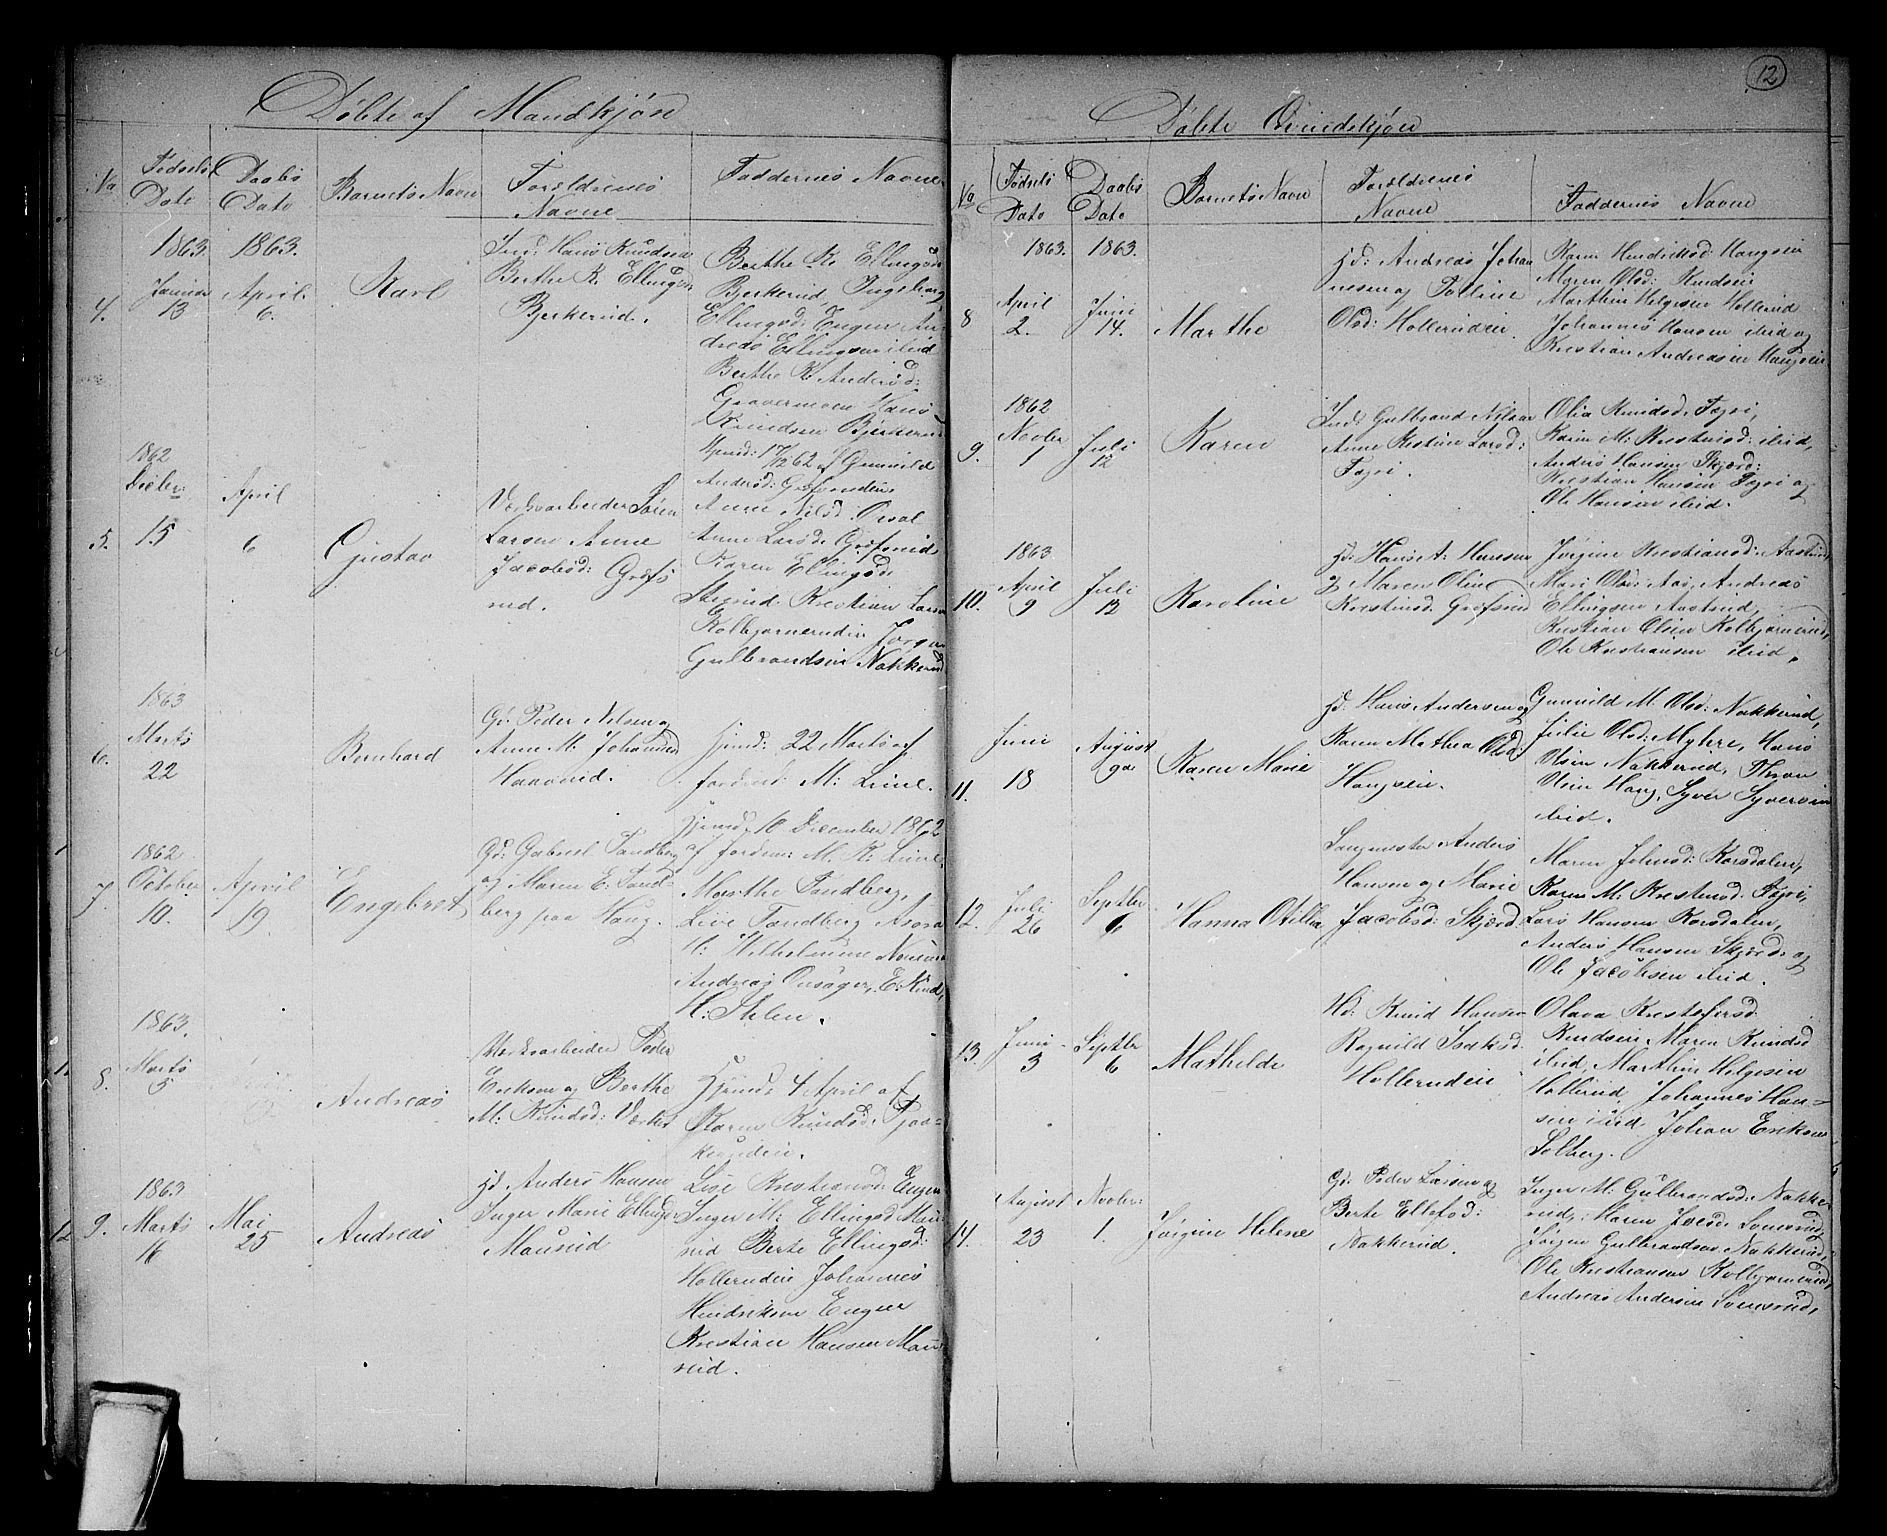 Døbte af Mandkjøn
No
Fødsels Date
Daabs Dato
Barnets Navn
Forældrenes Navne
Faddernes Navne
4.
1863
Januar
13
1863.
April.
6.
Karl
Ind: Hans Knudsen
Berthe K. Ellingsd
Bjerkerud.
Berthe K. Ellingsd
Bjerkerud, Ingeborg
Ellingsd: Engen An-
dreas Ellingsen ibid
Berthe K. Andersd:
Gravermoen Hans
Knudsen Bjerkerud
5.
1862
Decbr:
15
April
6
Gustav
Værksarbeider Søren
Larsen Anne
Jacobsd: Grefs
rud.
Hjemd: 17/12 62 af Gunild
Andersd: Grefsrudeie
Anne Nilsd:
Anne Larsd: Grefsrud
Karen Ellingsd:
Krestian Larsen
Kolbjørnerudeie Jørgen
Gulbrandsen Nakkerud
6.
1863
Marts
22
Bernhard
Gr: Peder Nelsen og
Anne M. Johannesd
Haavrud.
Hjemd: 22 Marts af
Jordmd: M: Line.
7.
1862
October
10.
April
19
Engebret
Gd: Gabriel Tandberg
og Maren E. Tand-
berg paa Haug.
Hjemd. 10 December 1862
af Jordem: M. K. Line,
Marthe Tandberg,
Live Tandberg
H: Wilhelmine
Andreas Onsager, E. Rud,
H: Ihlen.
8.
1863.
Marts
5
Andreas
Værksarbeider Peder
Eriksen og Berthe
M: Knudsd: Værket
Hjemd: 4 April af
Karen Knudsd: Tjoa-
9.
1863
Marts
16
Mai
25
Andreas
Hd: Anders Hansen
Inger Marie Ellingsd
Maurud
Lise Kristiansd: Engen
Inger M: Ellingsd: Mau-
rud Berte Ellingsd:
Hollerudeie Johannes
Hendriksen Engen
Krestian Hansen Mau-
rud.

12
Døbte Qvindekjøn
No
Fødsels Dato
Daabs Dato
Barnets Navn
Forældrenes Navne
Faddernes Navne
8
1863.
April
2.
1863.
Juni
14.
Marthe
Hd: Andreas Johan
nesen og Pauline
Olsd: Hollerudeie
Karen Hendriksd: Haugseie
Maren Olsd: Rudseie
Marthin Helgesen Hollerud
Johannes Hansen ibid og
Krestian Andreasen Haugseie
9.
1862
Novbr
1
Juli
12
Karen
Ind: Gulbrand Nilsen
Anne Kestine Larsd:
Fagri.
Olia Knudsd: Fagri,
Karen M: Krestensd: ibid,
Anders Hansen Skjærd:
Krestian Hansen Fagri og
Ole Hansen ibid.
10.
1863
April
9
Juli
12
Karoline
Hd: Hans A: Hansen
og Maren Oline
Krestensd. Grefsrud
Jørgine Krestiansd: Aastrud,
Mari Olsd: Aas, Andreas
Ellingsen Aastrud,
Krestian Olsen Kolbjørnerud,
Ole Krestiansen ibid.
11.
Juni
18
August
Karen Marie
Hd: Hans Andersen og
Karen Mathea Olsd:
Haugseie.
Gunild M. Olsd: Nakkerud,
Julie Olsd: Myhre, Hans
Olsen Nakkerud, Thron
Olsen Haug, Syver Syversen
ibid.
12.
Juli
26
Septbr
6
Hanna Otillia
Sangmester Anders
Hansen og Marie
Jacobsd: Skjærd:
Maren Johnsd: Korsdalen,
Karen M. Krestensd. Fagri,
Lars Hansen Korsdalen,
Anders Hansen Skjærd: og
Ole Jacobsen ibid.
13.
Juni
3
Septbr
6
Mathilde
Hd: Knud Hansen
Ragnild Isaksd:
Hollerudeie
Olava Krestofersd
Rudseie Maren Knudsd
ibid, Marthin Helgesen
Hollerud, Johannes Han-
sen ibid Johan Eriksen
Solberg.
14.
August
23
Novbr:
1.
Jørgine Helene
Gd: Peder Larsen og
Berte Ellefsd:
Nakkerud.
Inger M: Gulbrandsd: Nakke-
rud, Maren Somerud,
Jørgen Gulbrandsen Nakkerud,
Ole Krestiansen Kolbjørnerud,
Andreas Andersen Somerud,